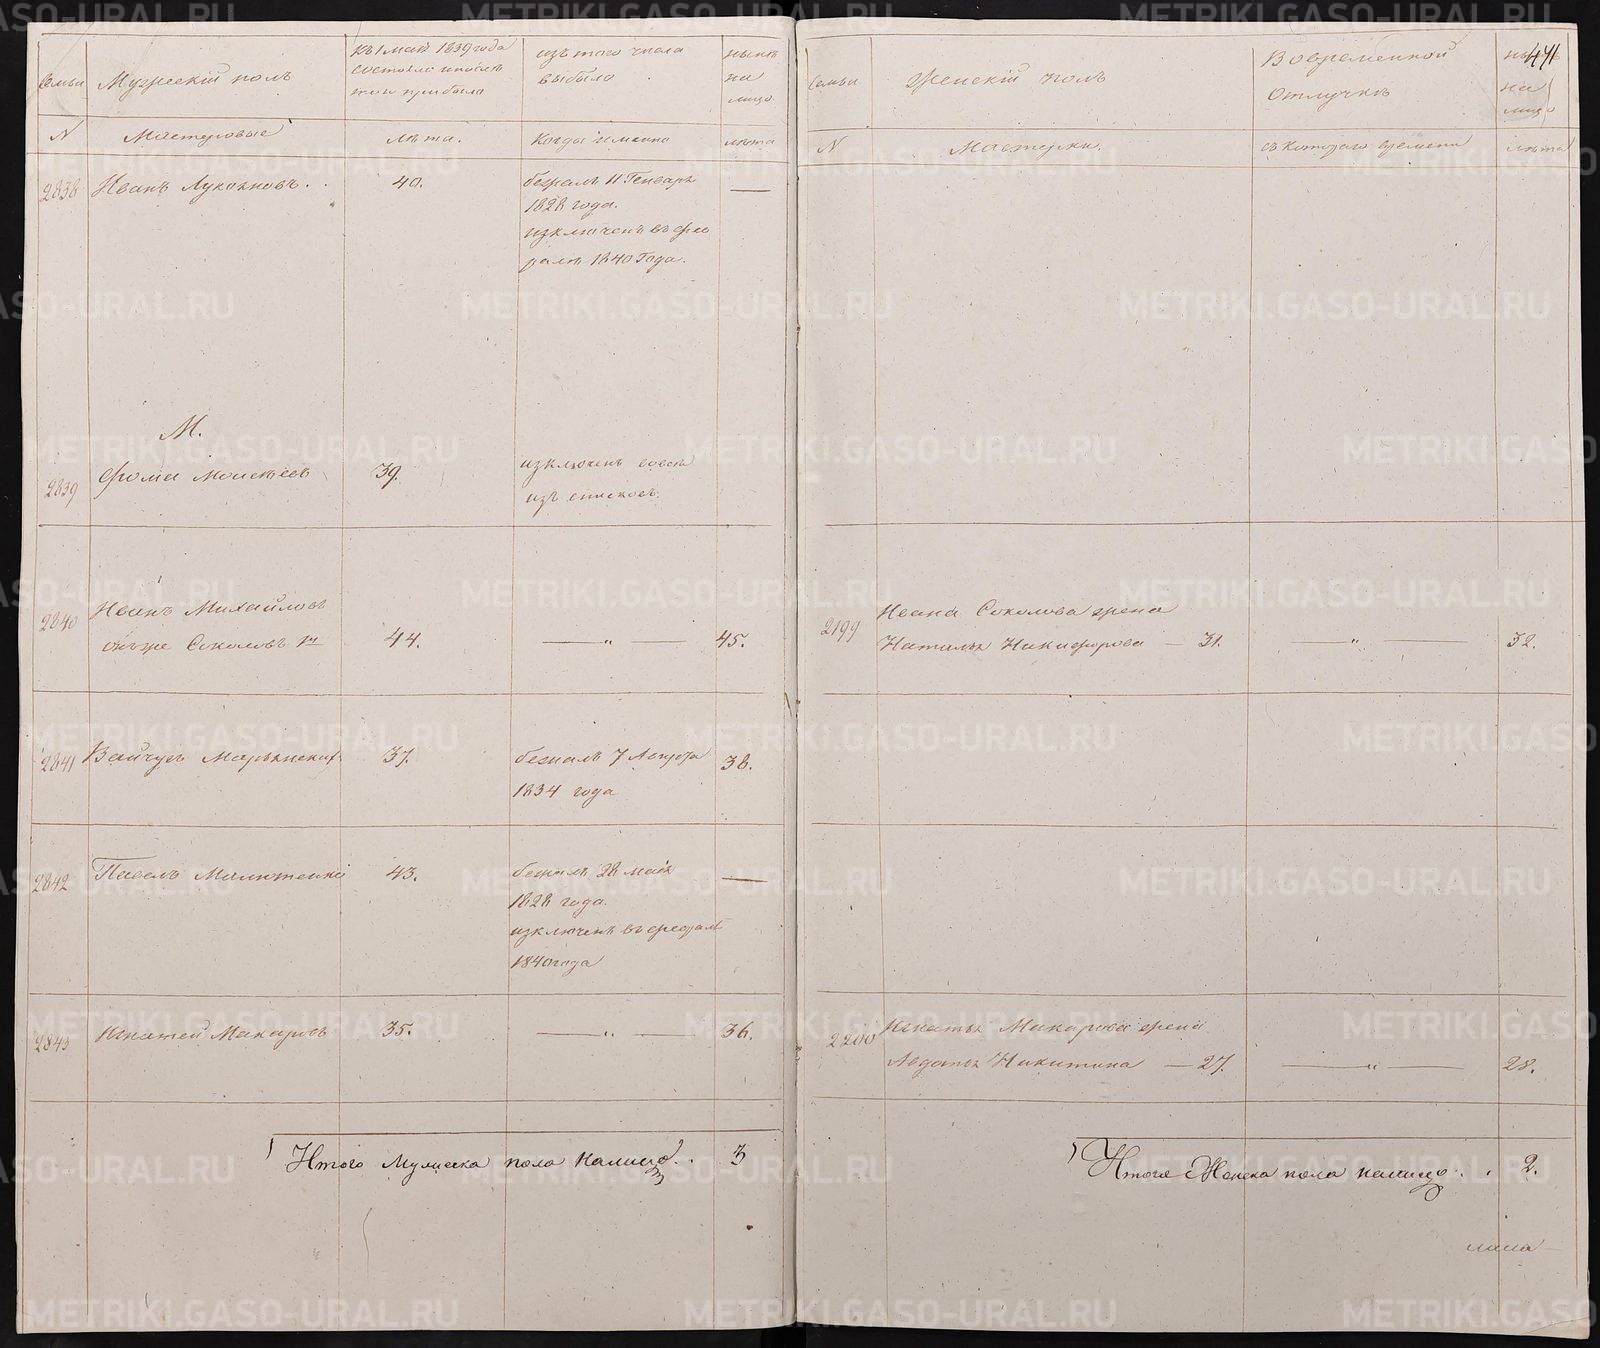 Семьи
Мужескій полъ
Къ 1 мая 1839 года
состояло и после
того прибыло
изъ того числа
выбыло
ныне
на
лицо
N
Мастеровые
лѣта.
Когда именно
лѣта
2838
Иванъ Лукояновъ.
40.
бежалъ 11 Генваря
1828 года.
изключенъ въ фев
ралѣ 1840 Года.
М.
2839
Фома Моисѣевъ
39.
изключенъ вовся
изъ списковъ.
2840
Иванъ Михайловъ
онъ же Соколовъ 1й
44.
45.
2841
37.
бежалъ 7 Августа
38.
1834 года
2842
Павелъ Малютенко
43.
бежалъ 28 мая
1828 года.
изключенъ въ феврал
1840 года
2843
Игнатей Макаровъ
35.
36.
Итого Мужеска пола налицо
3
Семьи
Женскій полъ
Во временной
Отлучкѣ
471
на
лицо
N
Мастерки.
съ котораго времени
лѣта
2199
Ивана Соколова жена
Наталья Никифорова — 31.
32.
2200
Игнатья Макарова жена
Авдотья Никитина — 27.
28.
Итого Женска пола налицо
2.
METRIKI.GASO-URAL.RU